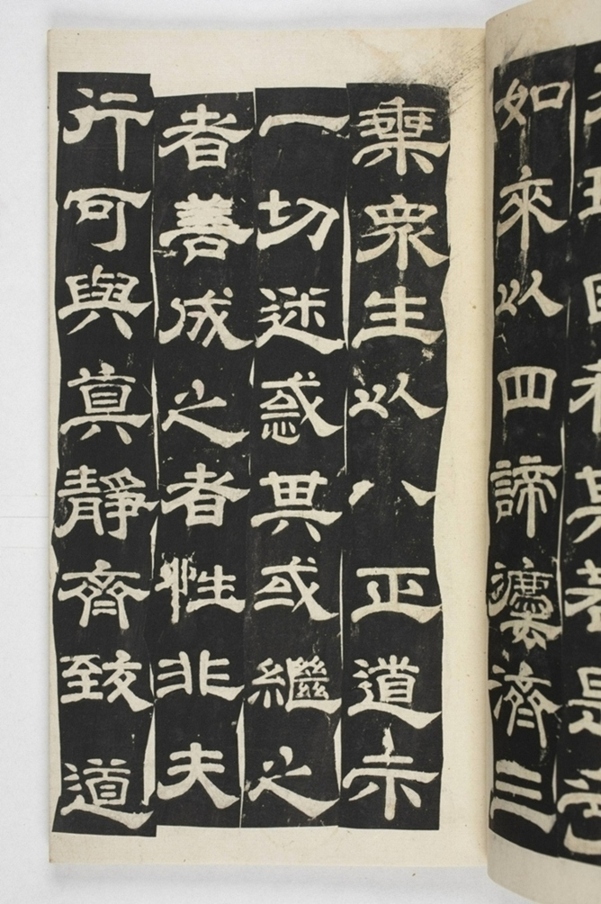 如來以四諦濟三
乗衆生以八正道示
一切迷惑其或繼之
者善成之者性非夫
行可與真靜齊致道